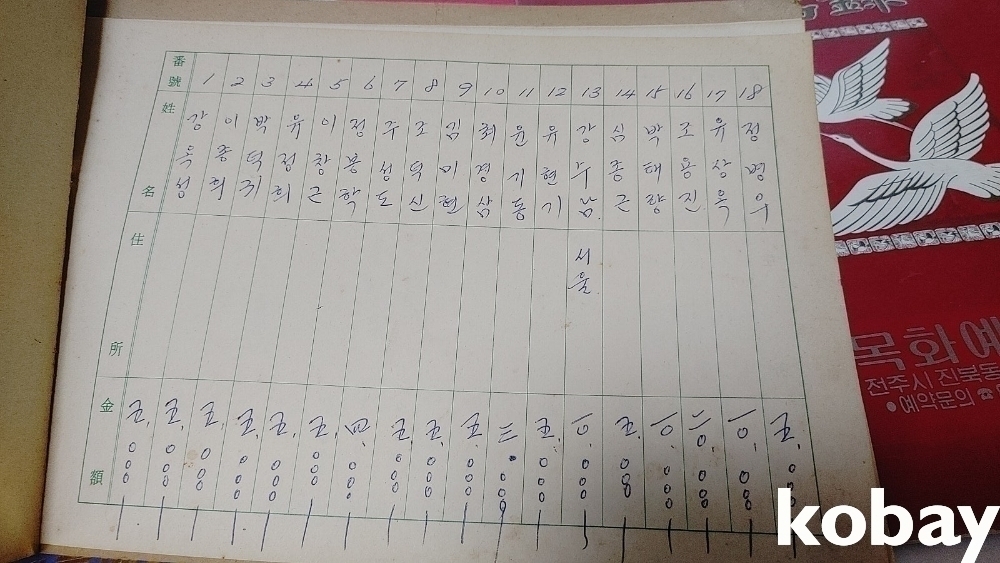 番號 1 2 3 4 5 6 7 8 9 10 11 12 13 14 15 16 17 18
姓名
강옥성
이종희
박덕귀
유정희
이창근
정봉학
주성도
조덕신
김미현
최경삼
윤기동
유현기
강수남
심종근
박태량
조용진
유상옥
정병우
住所
서울
金額
五.000
五.000
五.000
五.000
五.000
五.000
四.000
五.000
五.000
五.000
三.000
五.000
一0.000
五.000
一0.000
二0.000
一0.000
五.000
목화예
전주시 진북동
●예약문의 ☎
kobay